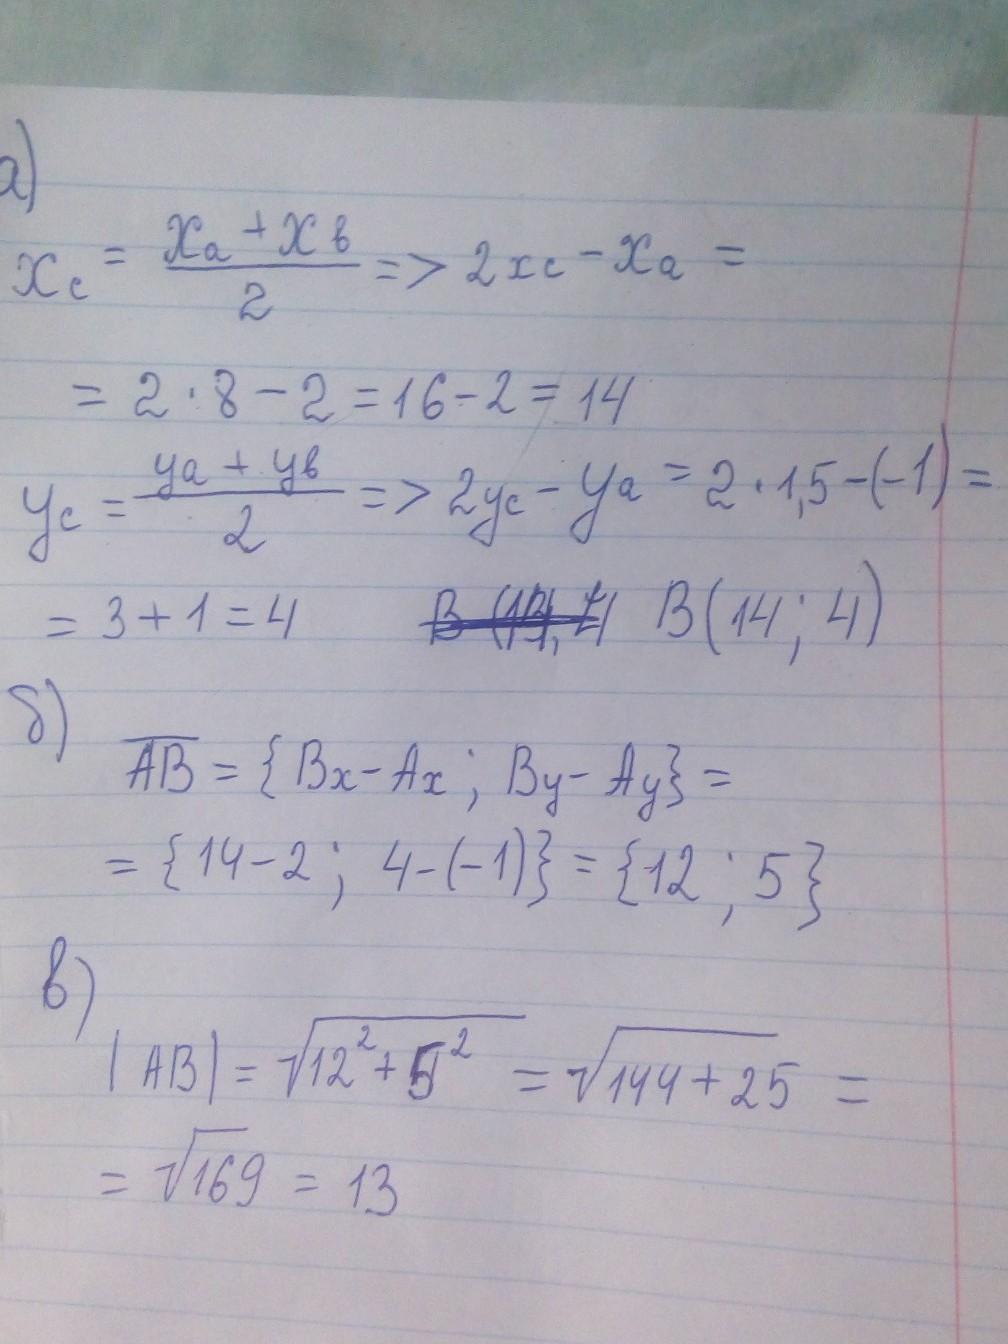 а)
xc = xa + xв / 2 => 2xc - xa =
= 2 · 8 - 2 = 16 - 2 = 14
yc = ya + yв / 2 => 2yc - ya = 2 · 1,5 - (-1) =
= 3 + 1 = 4 B (14; 4)
б)
AB = { Bx - Ax ; By - Ay } =
= { 14 - 2 ; 4 - (-1) } = { 12 ; 5 }
в)
|AB| = √12² + 5² = √144 + 25 =
= √169 = 13